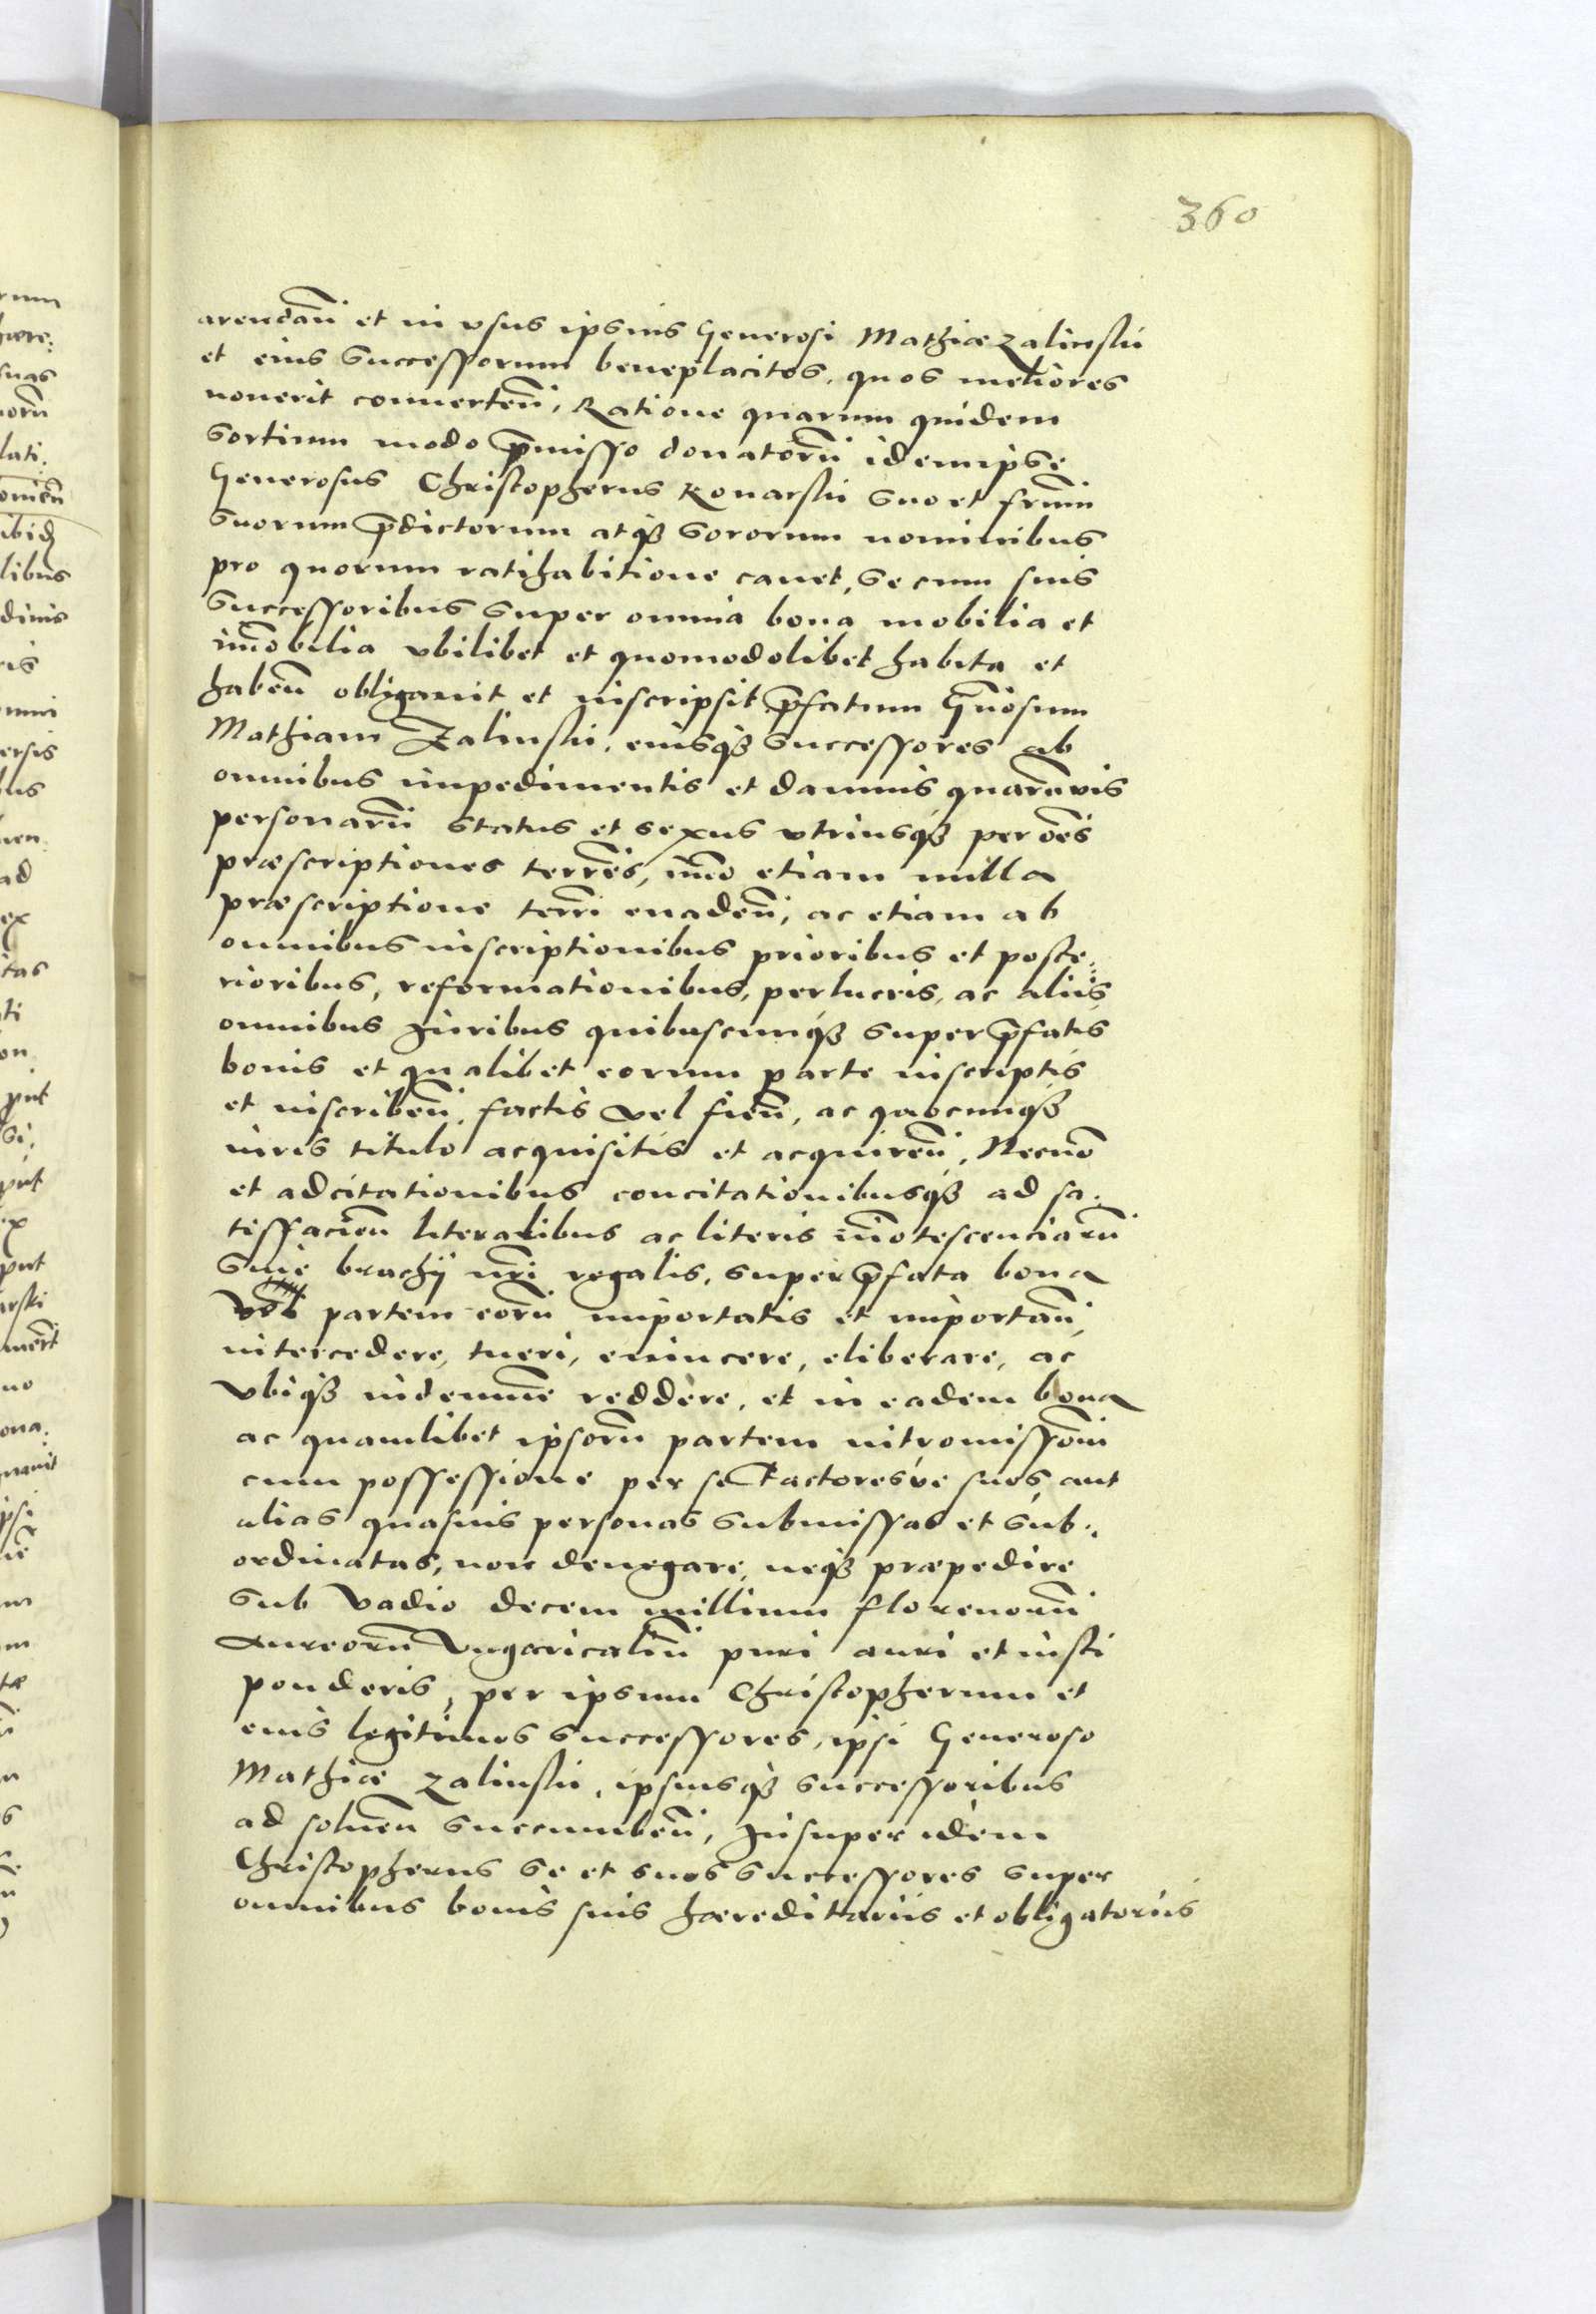 360
arendañ et in vsus ipsius Generosi Mathiæ Zalinskii
et eius successorum beneplacitos, quos meliores
nouerit conuerteñ, Ratione quarum quidem
sortium modo p̄misso donatorū idemipse
Generosus Christopherus Konarskii suo et frūm
suorum p̄dictorum atqȝ sororum nominibus
pro quorum ratihabitione cauet, se cum suis
successoribus super omnia bona mobilia et
im̄obilia vbilibet et quomodolibet habita et
habeñ obligauit et inscripsit p̄fatum Gn̄osum
Mathiam Zalinskii, eiusqȝ successores ab
omnibus impedimentis et damnis quarūvis
personarū status et sexus vtriusqȝ per oēs
præscriptiones terrēs, im̄o etiam nulla
præscriptione terrī euadeñ, ac etiam ab
omnibus inscriptionibus prioribus et poste:
rioribus, reformationibus, perlucris, ac aliis
omnibus Juribus quibuscunqȝ super p̄fatis
bonis et qualibet eorum parte inscriptis
et inscribeñ, factis vel fieñ, ac quocunqȝ
iuris titulo acquisitis et acquireñ, Necnō
et adcitationibus concitationibusqȝ ad sa:
tisfacieñ literalibus ac literis in̄otescenciarū
siue brachij nr̄i regalis, super p̄fata bona
partem eorū importatis et importañ,
intercedere, tueri, euincere, eliberare, ac
vbiqȝ indemnē reddere, et in eadem bona
ac quamlibet ipsorū partem intromissioñ
cum possessione per se factoresve suos, aut
alias quasuis personas submissas et sub:
ordinatas, non denegare, neqȝ præpedire
sub vadio decem millium florenorū
Aureorū Vngaricaliū puri auri et iusti
ponderis, per ipsum Christopherum et
eius legitimos successores, ipsi Generoso
Mathiæ Zalinskii, ipsiusqȝ successoribus
ad solueñ succumbeñ, Jnsuper idem
Christopherus se et suos successores super
omnibus bonis suis hæreditariis et obligatoriis